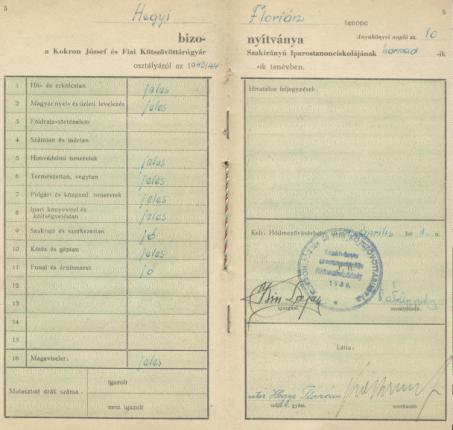 5
5
Hegyi Flórián tanonc
Anyakönyvi napló sz. 10
bizonyítványa
a Kokron József és Fiai Kötszövöttárúgyár Szakirányú Iparostanonciskolájának harmad -ik
osztályáról az 1943/44 -ik tanévben.
1 Hit- és erkölcstan jeles
2 Magyar nyelv és üzleti levelezés jeles
3 Földrajz-történelem
4 Számtan és mértan
5 Honvédelmi ismeretek jeles
6 Természettan, vegytan jeles
7 Polgári és közgazd. ismeretek jeles
8 Ipari könyvvitel és költségvetéstan jeles
9 Szakrajz és szerkezettan jó
10 Kötés és géptan jeles
11 Fonal és árúismeret jó
12
13
14
15
16 Magaviselet: jeles
Mulasztott órák száma: igazolt
nem igazolt
Hivatalos feljegyzések:
Kelt: Hódmezővásárhely
igazgató
osztályfő
Látta:
Hegyi Flórián